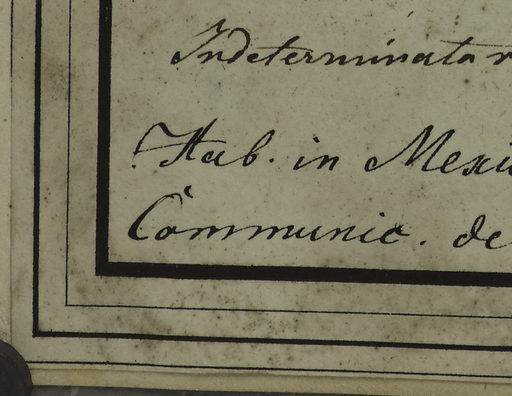 Indeterminata
Hab. in Mexi
Communic. de